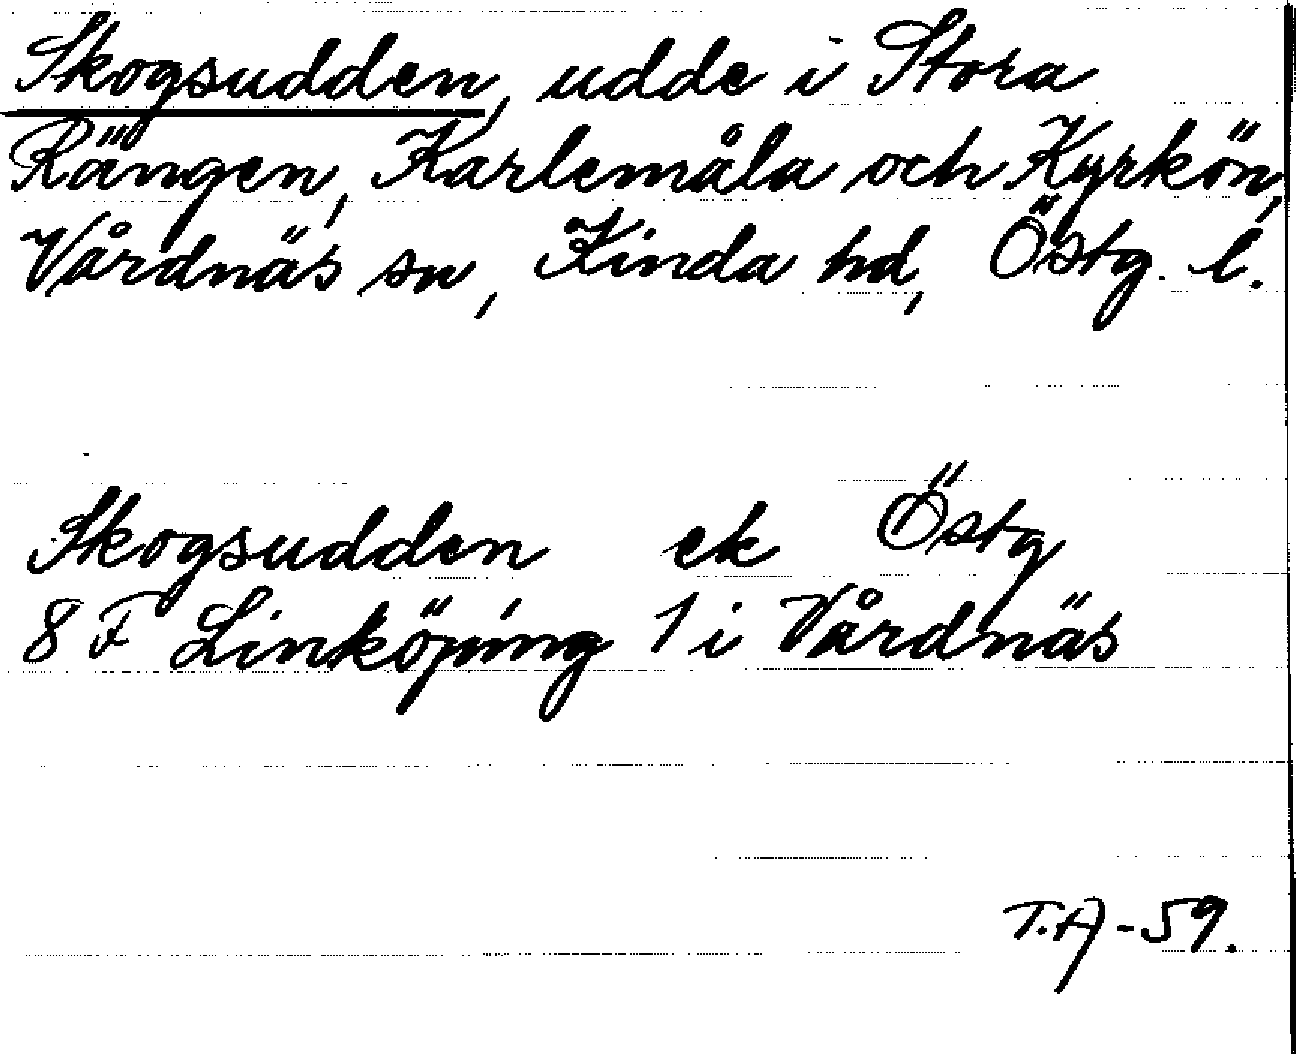 Skogsudden, udde i Stora
Rängen, Karlemåla och Kyrkön,
Vårdnäs sn, Kinda hd, Östg. l.
Skogsudden ek Östg
8 F Linköping 1 i Vårdnäs
T.A-59.